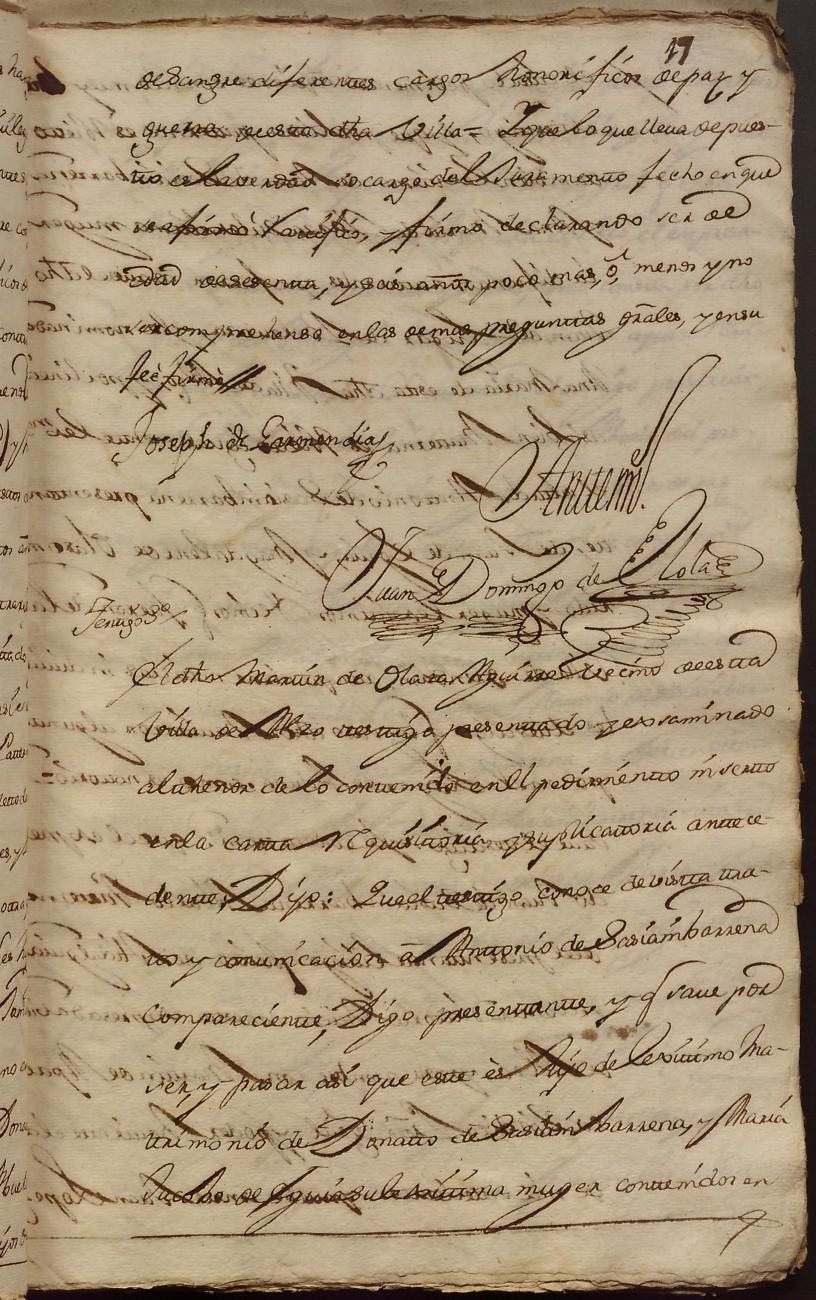 17
de Sangre diferentes cargos honorificos de paz y
guerra de esta dha Villa = Y que lo que lleva depues-
tto es la verdad so cargo del Juramento fecho en que
se afirmó ratificó, y firmó declarando ser de
edad de sesenta, y seis años poco mas, ó menos y no
ser comprehenso en las demas preguntas grales, y en su
feé firmé //
Joseph de Garmendia
Antemi.
Juan Domingo de Olola
Testigo 3º
El dho Martin de Olaza Aguirre Vecino de estta
Villa de testtigo presenttado y exsaminado
al thenor de lo conttenido en el pedimentto insertto
en la cartta requisittoria y suplicattoria antteze-
dentte, Dijo: Que el testtigo conoce de vistta tra-
tto y comunicación á Anttonio de Sasiambarrena
Compareciente, Digo presenttantte, y q save por
ser, y pasar así que estte és Hijo de Lexittimo Ma-
ttrimonio de Donatto de Sasiambarrena, y Maria
Jacoba de su lexittima muger conttenidos en